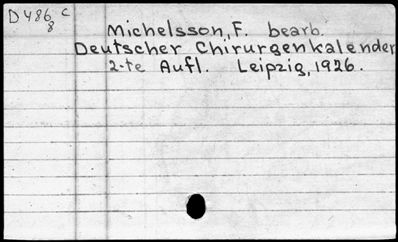 D 486 c
8
Michelsson, F. bearb.
Deutscher Chirurgenkalender
2-te Aufl. Leipzig, 1926.